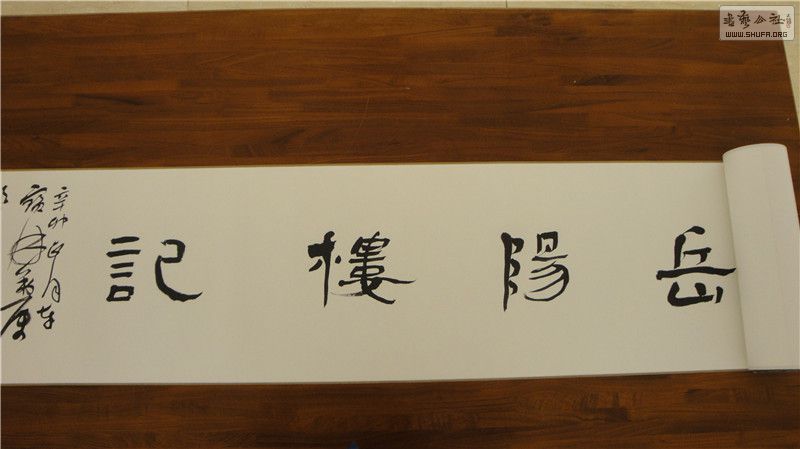 岳陽樓記
辛卯正月
書藝公社
WWW.SHUFA.ORG